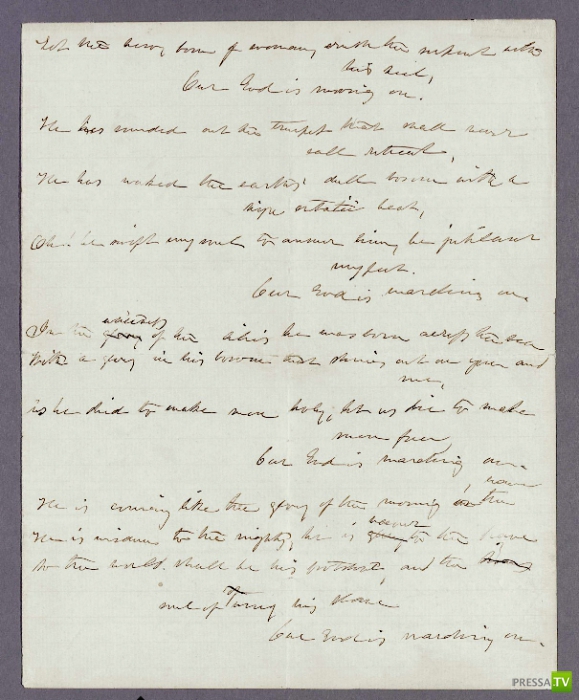 Let the hero, born of woman, crush the serpent with
his heel,
Our God is moving on.
He has sounded out the trumpet that shall never
call retreat,
He has waked the earth's dull bosom with a
high ecstatic beat,
Oh! be swift my soul to answer him, be jubilant
my feet.
Our God is marching on.
whiteness
In the glory of the lilies he was born across the sea
With a glory in his bosom that shines out on you and
me,
As he died to make men holy, let us die to make
men free,
Our God is marching on.
wave
He is coming like the glory of the morning on the
honor
He is wisdom to the mighty, he is to the brave
So the world shall be his footstool, and the
soul of Time his slave
Our God is marching on.
PRESSA.TV